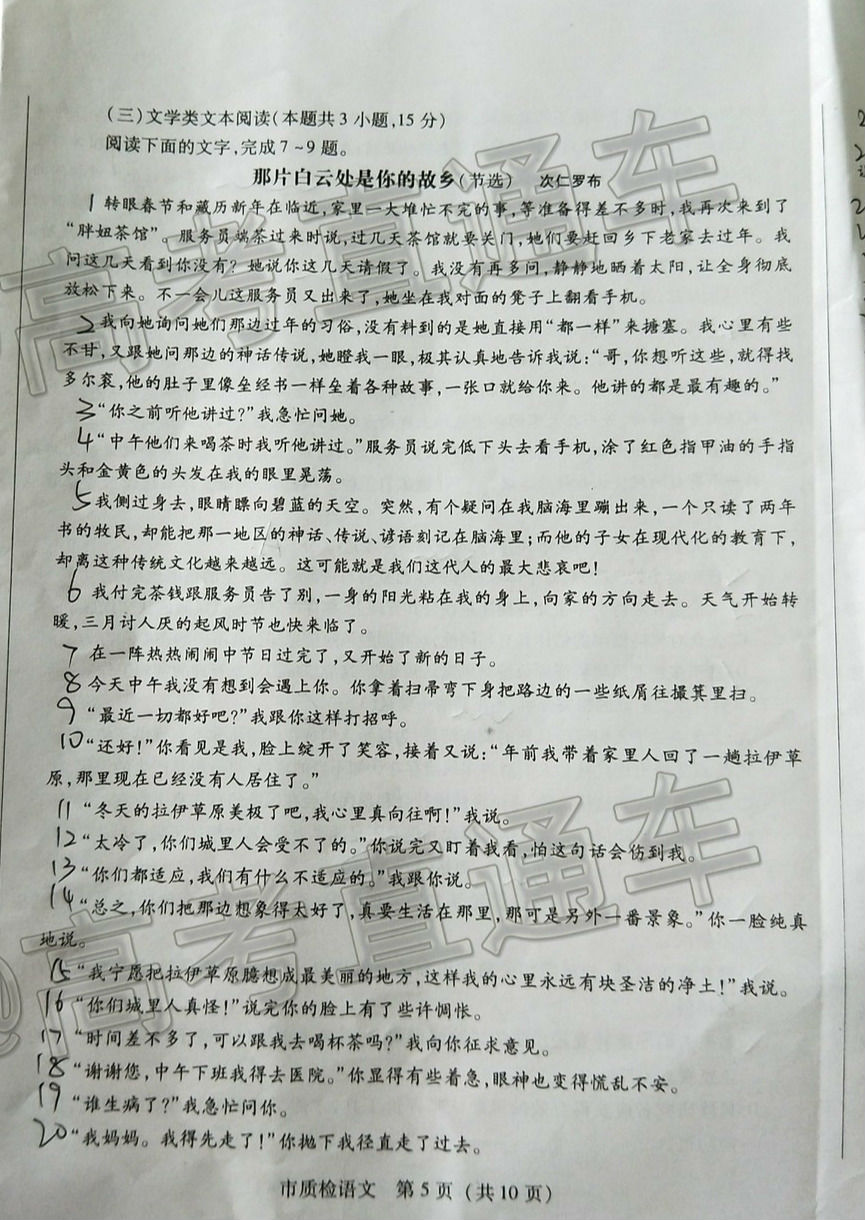 (三)文学类文本阅读(本题共3小题,15分)
阅读下面的文字,完成7~9题。
那片白云处是你的故乡(节选) 次仁罗布
1转眼春节和藏历新年在临近,家里一大堆忙不完的事,等准备得差不多时,我再次来到了
“胖妞茶馆”。服务员端茶过来时说,过几天茶馆就要关门,她们要赶回乡下老家去过年。我
问这几天看到你没有?她说你这几天请假了。我没有再多问,静静地晒着太阳,让全身彻底
放松下来。不一会儿这服务员又出来了,她坐在我对面的凳子上翻看手机。
2我向她询问她们那边过年的习俗,没有料到的是她直接用“都一样”来搪塞。我心里有些
不甘,又跟她问那边的神话传说,她瞪我一眼,极其认真地告诉我说:“哥,你想听这些,就得找
多尔衮,他的肚子里像垒经书一样垒着各种故事,一张口就给你来。他讲的都是最有趣的。”
3“你之前听他讲过?”我急忙问她。
4“中午他们来喝茶时我听他讲过。”服务员说完低下头去看手机,涂了红色指甲油的手指
头和金黄色的头发在我的眼里晃荡。
5我侧过身去,眼睛瞟向碧蓝的天空。突然,有个疑问在我脑海里蹦出来,一个只读了两年
书的牧民,却能把那一地区的神话、传说、谚语刻记在脑海里;而他的子女在现代化的教育下,
却离这种传统文化越来越远。这可能就是我们这代人的最大悲哀吧!
6我付完茶钱跟服务员告了别,一身的阳光粘在我的身上,向家的方向走去。天气开始转
暖,三月讨人厌的起风时节也快来临了。
7在一阵热热闹闹中节日过完了,又开始了新的日子。
8今天中午我没有想到会遇上你。你拿着扫帚弯下身把路边的一些纸屑往撮箕里扫。
9“最近一切都好吧?”我跟你这样打招呼。
10“还好!”你看见是我,脸上绽开了笑容,接着又说:“年前我带着家里人回了一趟拉伊草
原,那里现在已经没有人居住了。”
11“冬天的拉伊草原美极了吧,我心里真向往啊!”我说。
12“太冷了,你们城里人会受不了的。”你说完又盯着我看,怕这句话会伤到我。
13“你们都适应,我们有什么不适应的。”我跟你说。
14“总之,你们把那边想象得太好了,真要生活在那里,那可是另外一番景象。”你一脸纯真
地说。
15“我宁愿把拉伊草原臆想成最美丽的地方,这样我的心里永远有块圣洁的净土!”我说。
16“你们城里人真怪!”说完你的脸上有了些许惆怅。
17“时间差不多了,可以跟我去喝杯茶吗?”我向你征求意见。
18“谢谢您,中午下班我得去医院。”你显得有些着急,眼神也变得慌乱不安。
19“谁生病了?”我急忙问你。
20“我妈妈。我得先走了!”你抛下我径直走了过去。
市质检语文 第5页(共10页)
高考直通车
@高考直通车